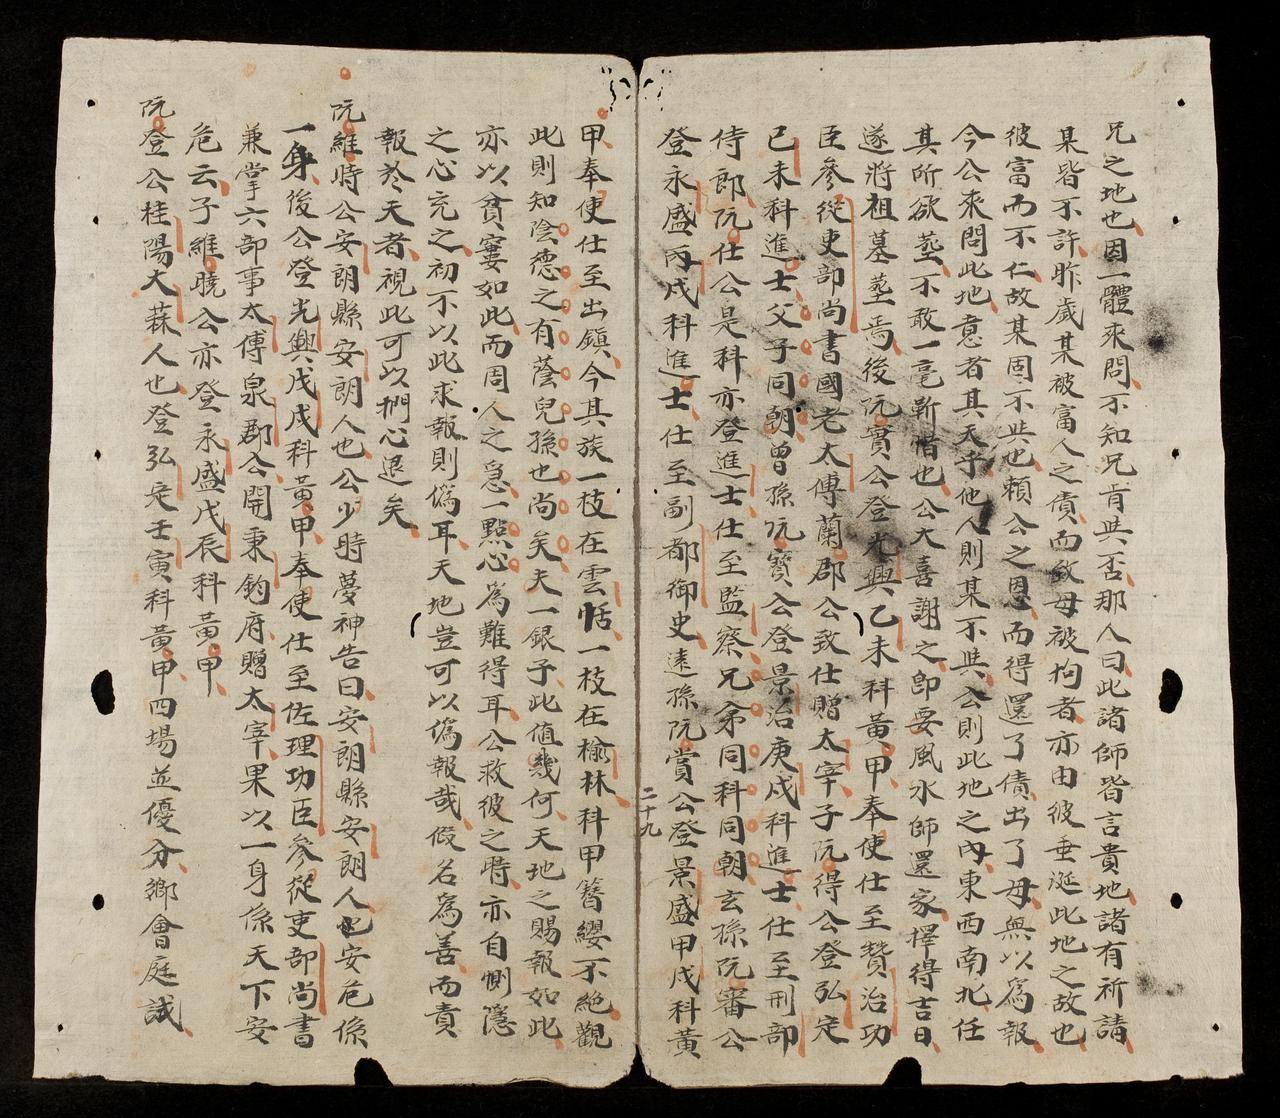 兄之地也因一體來問不知兄肯與否那人曰此諸師皆言貴地諸有祈請
某皆不許昨歲某被富人之債而致母被拘者亦由彼垂涎此地之故也
彼富而不仁故某固不與也賴公之恩而得還了債出了母無以為報
今公來問此地意者其天乎他人則某不與公則此地之內東西南北任
其所欲塟不敢一毫靳惜也公大喜謝之即要風水師還家擇得吉日
遂將祖墓塟焉後阮實公登光興乙未科黃甲奉使仕至贊治功
臣參從吏部尚書國老太傅蘭郡公致仕贈太宰子阮得公登弘定
已未科進士父子同朝曾孫阮寶公登景治庚戌科進士仕至刑部
侍郎阮仕公是科亦登進士仕至監察兄弟同科同朝玄孫阮審公
登永盛丙戌科進士仕至副都御史遠孫阮賞公登景盛甲戌科黃
二十九
甲奉使仕至出鎭今其族一枝在雲恬一枝在楡林科甲簪纓不絕觀
此則知陰德之有蔭兒孫也尚矣夫一銀子此值幾何天地之賜報如此
亦以貧窶如此而周人之急一點心為難得耳公救彼之時亦自惻隱
之心充之初不以此求報則偽耳天地豈可以偽報哉假名為善而責
報於天者視此可以捫心退矣
阮維時公安朗縣安朗人也公少時夢神告曰安朗縣安朗人也安危係
一身後公登光興戊戌科黃甲奉使仕至佐理功臣參從吏部尚書
兼掌六部事太傅泉郡公開秉鈞府贈太宰果以一身係天下安
危云子維曉公亦登永盛戊辰科黃甲
阮登公桂陽大蒜人也登弘定壬寅科黃甲四場並優分鄉會庭試